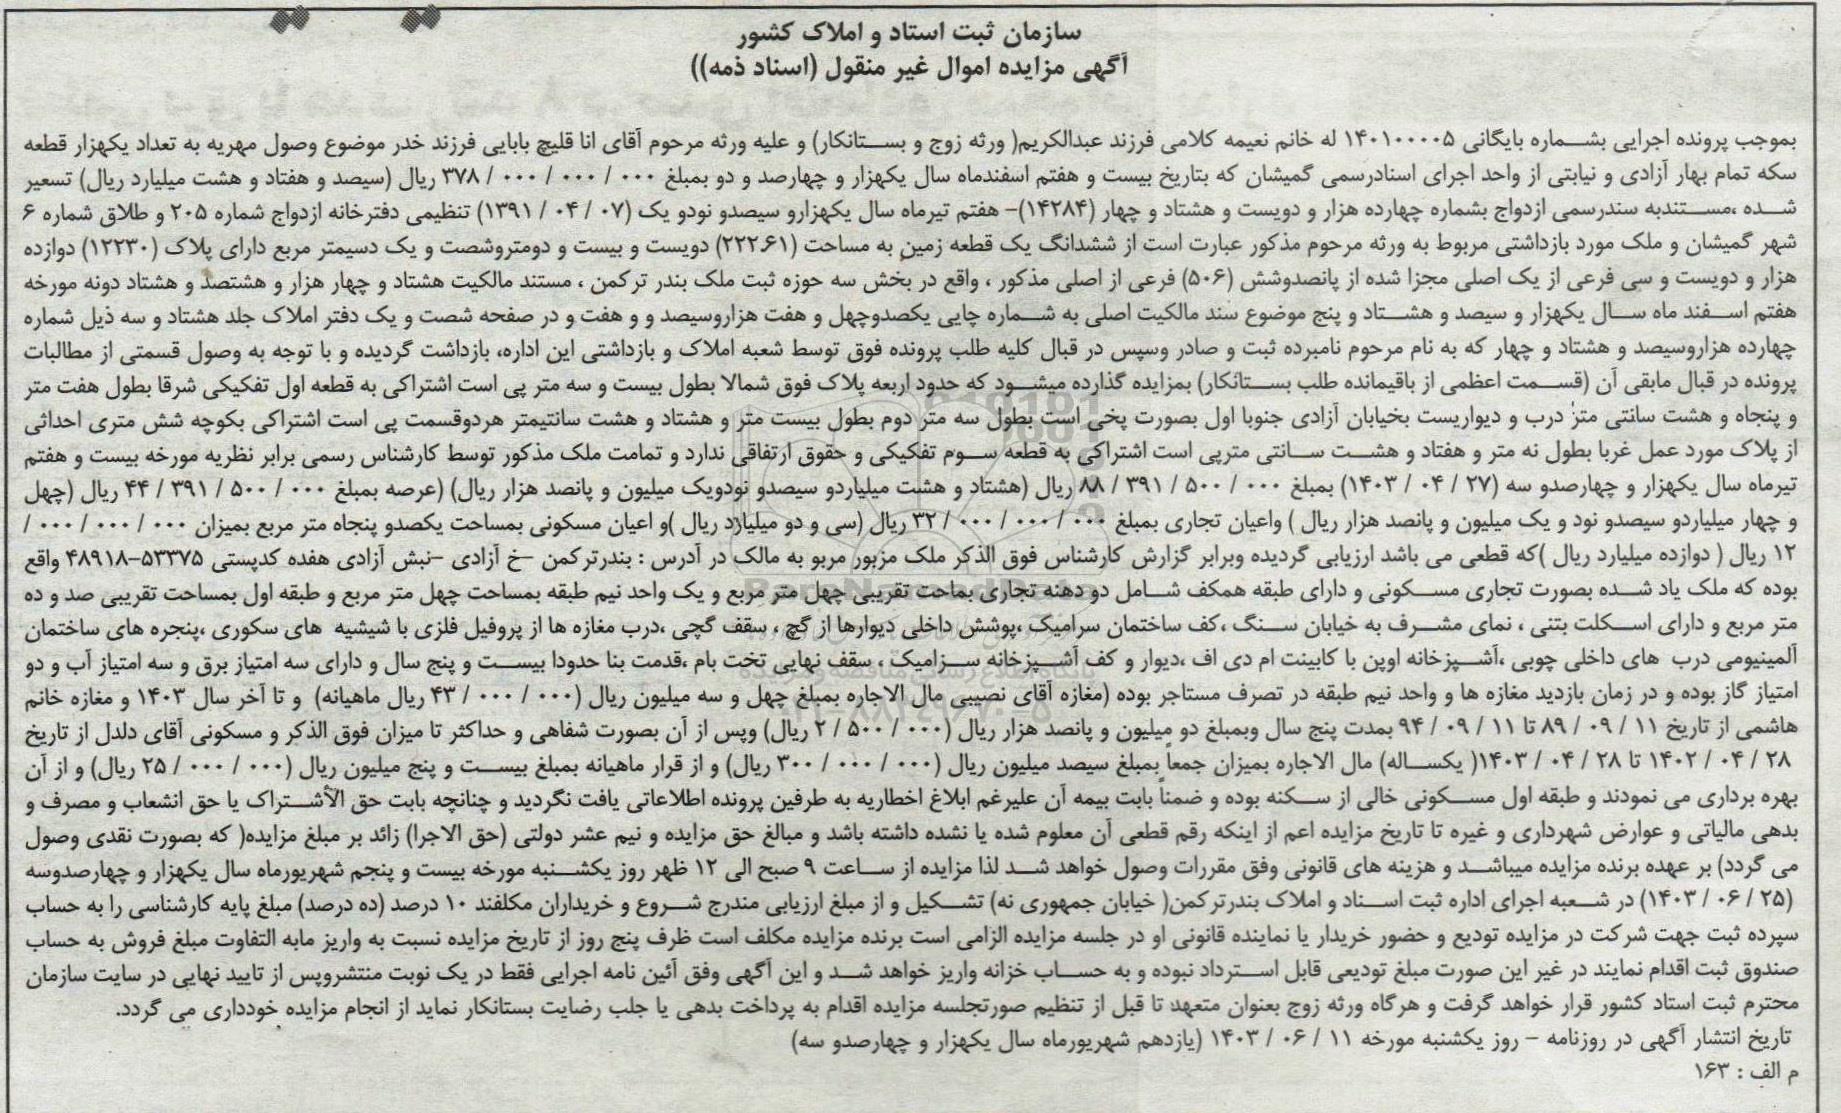 سازمان ثبت استاد و املاک کشور
آگهی مزایده اموال غیر منقول (اسناد ذمه))
بموجب پرونده اجرایی بشماره بایگانی ۱۴۰۱۰۰۰۰۵ له خانم نعیمه کلامی فرزند عبدالکریم( ورثه زوج و بستانکار) و علیه ورثه مرحوم آقای انا قلیچ بابایی فرزند خدر موضوع وصول مهریه به تعداد یکهزار قطعه
سکه تمام بهار آزادی و نیابتی از واحد اجرای اسنادرسمی گمیشان که بتاریخ بیست و هفتم اسفندماه سال یکهزار و چهارصد و دو بمبلغ ۰۰۰ / ۰۰۰ / ۰۰۰ / ۳۷۸ ریال (سیصد و هفتاد و هشت میلیارد ریال) تسعیر
شده ،مستندبه سندرسمی ازدواج بشماره چهارده هزار و دویست و هشتاد و چهار (۱۴۲۸۴)- هفتم تیرماه سال یکهزارو سیصدو نودو یک (۰۷ / ۰۴ / ۱۳۹۱) تنظیمی دفترخانه ازدواج شماره ۲۰۵ و طلاق شماره ۶
شهر گمیشان و ملک مورد بازداشتی مربوط به ورثه مرحوم مذکور عبارت است از ششدانگ یک قطعه زمین به مساحت (۲۲۲.۶۱) دویست و بیست و دومتروشصت و یک دسیمتر مربع دارای پلاک (۱۲۲۳۰) دوازده
هزار و دویست و سی فرعی از یک اصلی مجزا شده از پانصدوشش (۵۰۶) فرعی از اصلی مذکور ، واقع در بخش سه حوزه ثبت ملک بندر ترکمن ، مستند مالکیت هشتاد و چهار هزار و هشتصد و هشتاد دونه مورخه
هفتم اسفند ماه سال یکهزار و سیصد و هشتاد و پنج موضوع سند مالکیت اصلی به شماره چاپی یکصدوچهل و هفت هزاروسیصد و و هفت و در صفحه شصت و یک دفتر املاک جلد هشتاد و سه ذیل شماره
چهارده هزاروسیصد و هشتاد و چهار که به نام مرحوم نامبرده ثبت و صادر وسپس در قبال کلیه طلب پرونده فوق توسط شعبه املاک و بازداشتی این اداره، بازداشت گردیده و با توجه به وصول قسمتی از مطالبات
پرونده در قبال مابقی آن (قسمت اعظمی از باقیمانده طلب بستانکار) بمزایده گذارده میشود که حدود اربعه پلاک فوق شمالا بطول بیست و سه متر پی است اشتراکی به قطعه اول تفکیکی شرقا بطول هفت متر
و پنجاه و هشت سانتی متر درب و دیواریست بخیابان آزادی جنوبا اول بصورت پخی است بطول سه متر دوم بطول بیست متر و هشتاد و هشت سانتیمتر هردوقسمت پی است اشتراکی بکوچه شش متری احداثی
از پلاک مورد عمل غربا بطول نه متر و هفتاد و هشت سانتی مترپی است اشتراکی به قطعه سوم تفکیکی و حقوق ارتفاقی ندارد و تمامت ملک مذکور توسط کارشناس رسمی برابر نظریه مورخه بیست و هفتم
تیرماه سال یکهزار و چهارصدو سه (۲۷ / ۰۴ / ۱۴۰۳) بمبلغ ۰۰۰ / ۵۰۰ / ۳۹۱ / ۸۸ ریال (هشتاد و هشت میلیاردو سیصدو نودویک میلیون و پانصد هزار ریال) (عرصه بمبلغ ۰۰۰ / ۵۰۰ / ۳۹۱ / ۴۴ ریال (چهل
و چهار میلیاردو سیصدو نود و یک میلیون و پانصد هزار ریال ) واعیان تجاری بمبلغ ۰۰۰ / ۰۰۰ / ۰۰۰ / ۳۲ ریال (سی و دو میلیارد ریال )و اعیان مسکونی بمساحت یکصدو پنجاه متر مربع بمیزان ۰۰۰ / ۰۰۰ / ۰۰۰ /
۱۲ ریال ( دوازده میلیارد ریال )که قطعی می باشد ارزیابی گردیده وبرابر گزارش کارشناس فوق الذکر ملک مزبور مربو به مالک در آدرس : بندرترکمن -خ آزادی -نبش آزادی هفده کدپستی ۵۳۳۷۵-۴۸۹۱۸ واقع
بوده که ملک یاد شده بصورت تجاری مسکونی و دارای طبقه همکف شامل دو دهنه تجاری بماحت تقریبی چهل متر مربع و یک واحد نیم طبقه بمساحت چهل متر مربع و طبقه اول بمساحت تقریبی صد و ده
متر مربع و دارای اسکلت بتنی ، نمای مشرف به خیابان سنگ ،کف ساختمان سرامیک ،پوشش داخلی دیوارها از گچ ، سقف گچی ،درب مغازه ها از پروفیل فلزی با شیشیه های سکوری ،پنجره های ساختمان
آلمینیومی درب های داخلی چوبی ،آشپزخانه اوپن با کابینت ام دی اف ،دیوار و کف آشپزخانه سرامیک ، سقف نهایی تخت بام ،قدمت بنا حدودا بیست و پنج سال و دارای سه امتیاز برق و سه امتیاز آب و دو
امتیاز گاز بوده و در زمان بازدید مغازه ها و واحد نیم طبقه در تصرف مستاجر بوده (مغازه آقای نصیبی مال الاجاره بمبلغ چهل و سه میلیون ریال (۰۰۰ / ۰۰۰ / ۴۳ ریال ماهیانه) و تا آخر سال ۱۴۰۳ و مغازه خانم
هاشمی از تاریخ ۱۱ / ۰۹ / ۸۹ تا ۱۱ / ۰۹ / ۹۴ بمدت پنج سال وبمبلغ دو میلیون و پانصد هزار ریال (۰۰۰ / ۵۰۰ / ۲ ریال) وپس از آن بصورت شفاهی و حداکثر تا میزان فوق الذکر و مسکونی آقای دلدل از تاریخ
۲۸ / ۰۴ / ۱۴۰۲ تا ۲۸ / ۰۴ / ۱۴۰۳( یکساله) مال الاجاره بمیزان جمعاً بمبلغ سیصد میلیون ریال (۰۰۰ / ۰۰۰ / ۳۰۰ ریال) و از قرار ماهیانه بمبلغ بیست و پنج میلیون ریال (۰۰۰ / ۰۰۰ / ۲۵ ریال) و از آن
بهره برداری می نمودند و طبقه اول مسکونی خالی از سکنه بوده و ضمناً بابت بیمه آن علیرغم ابلاغ اخطاریه به طرفین پرونده اطلاعاتی یافت نگردید و چنانچه بابت حق الاشتراک یا حق انشعاب و مصرف و
بدهی مالیاتی و عوارض شهرداری و غیره تا تاریخ مزایده اعم از اینکه رقم قطعی آن معلوم شده یا نشده داشته باشد و مبالغ حق مزایده و نیم عشر دولتی (حق الاجرا) زائد بر مبلغ مزایده( که بصورت نقدی وصول
می گردد) بر عهده برنده مزایده میباشد و هزینه های قانونی وفق مقررات وصول خواهد شد لذا مزایده از ساعت ۹ صبح الی ۱۲ ظهر روز یکشنبه مورخه بیست و پنجم شهریورماه سال یکهزار و چهارصدوسه
(۲۵ / ۰۶ / ۱۴۰۳) در شعبه اجرای اداره ثبت اسناد و املاک بندرترکمن( خیابان جمهوری نه) تشکیل و از مبلغ ارزیابی مندرج شروع و خریداران مکلفند ۱۰ درصد (ده درصد) مبلغ پایه کارشناسی را به حساب
سپرده ثبت جهت شرکت در مزایده تودیع و حضور خریدار یا نماینده قانونی او در جلسه مزایده الزامی است برنده مزایده مکلف است ظرف پنج روز از تاریخ مزایده نسبت به واریز مابه التفاوت مبلغ فروش به حساب
صندوق ثبت اقدام نمایند در غیر این صورت مبلغ تودیعی قابل استرداد نبوده و به حساب خزانه واریز خواهد شد و این آگهی وفق آئین نامه اجرایی فقط در یک نوبت منتشروپس از تایید نهایی در سایت سازمان
محترم ثبت استاد کشور قرار خواهد گرفت و هرگاه ورثه زوج بعنوان متعهد تا قبل از تنظیم صورتجلسه مزایده اقدام به پرداخت بدهی یا جلب رضایت بستانکار نماید از انجام مزایده خودداری می گردد.
تاریخ انتشار آگهی در روزنامه - روز یکشنبه مورخه ۱۱ / ۰۶ / ۱۴۰۳ (یازدهم شهریورماه سال یکهزار و چهارصدو سه)
م الف : ۱۶۳